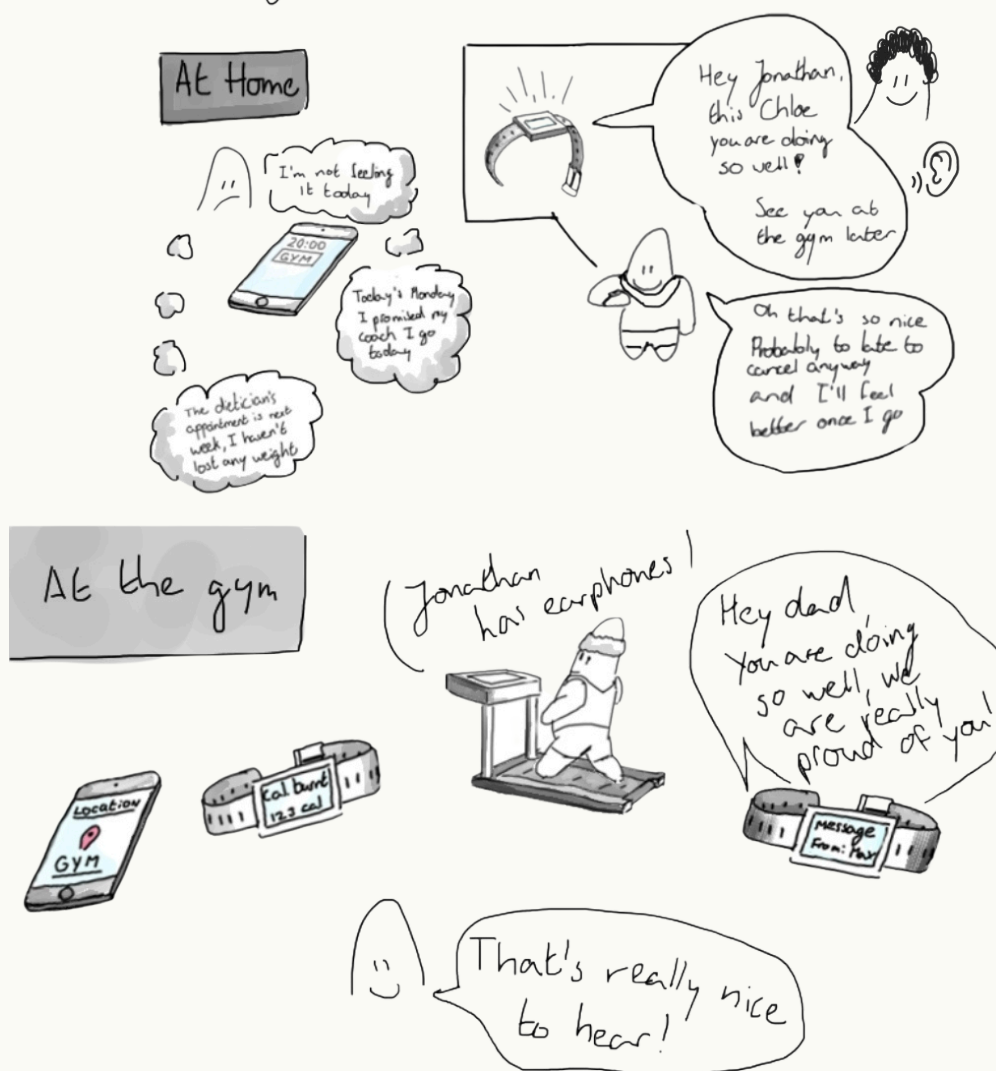 At Home
I'm not feeling
it today
20:00
GYM
Today's Monday
I promised my
coach I go
today
The dietician's
appointment is next
week, I haven't
lost any weight
Hey Jonathan,
this Chloe
you are doing
so well!
See you at
the gym later
Oh that's so nice
Probably to late to
cancel anyway
and I'll feel
better once I go
At the gym
Jonathan
has earphones
LOCATION
GYM
Cal burnt
123 cal
Hey dad,
You are doing
so well, we
are really
proud of you!
Message
From:
That's really nice
to hear!